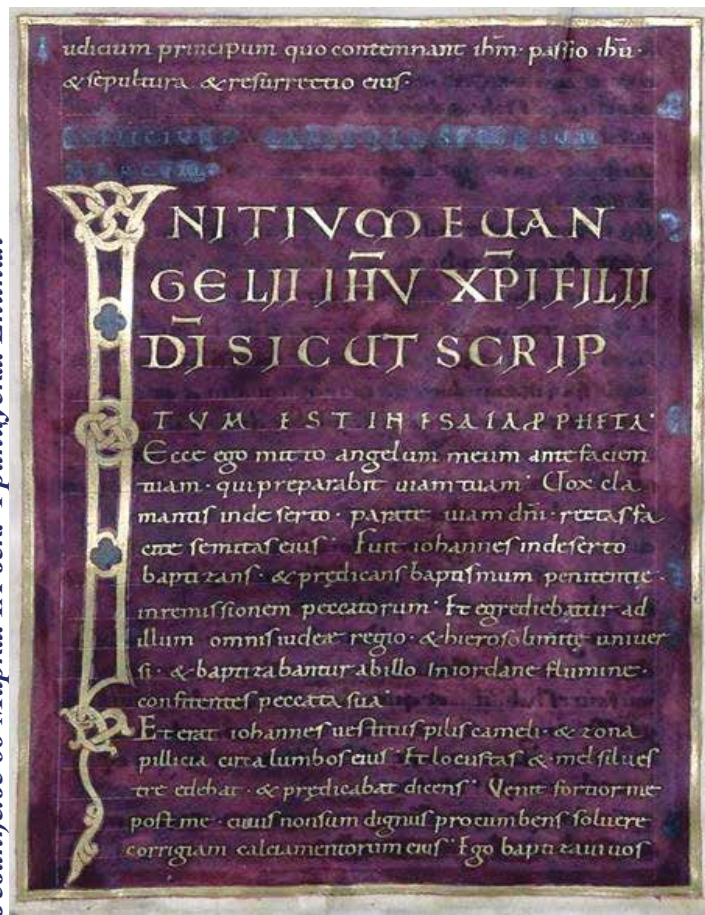 udicium principum quo contemnant ihm̅· passio ihu̅·
& sepultura & resurrectio eius·
EXPLICIUNT CAPITULA SECUNDUM
MARCUM·
INITIUM EUAN
GELII IH̅U XP̅I FILII
DI̅ SICUT SCRIP
TUM EST IN ESAIA PPHETA·
Ecce ego mitto angelum meum ante facien
tuam· qui preparabit uiam tuam· Uox cla
mantis inde serto· parate uiam dn̅i· rectas fa
cite semitas eius· Fuit iohannes indeserto
baptizans· & prędicans baptismum penitentię·
inremissionem peccatorum· Et egrediebatur ad
illum omnis iudeæ regio· & hierosolimitę uniuer
si· & baptizabantur abillo Iniordane flumine·
confitentes peccata sua·
Et erat iohannes uestitus pilis cameli· & zona
pillicia circa lumbos eius· Et locustas & mel silues
tre edebat· & prędicabat dicens· Uenit fortior me
post me· cuius nonsum dignus procumbens soluere
corrigiam calciamentorum eius· Ego baptizaui uos